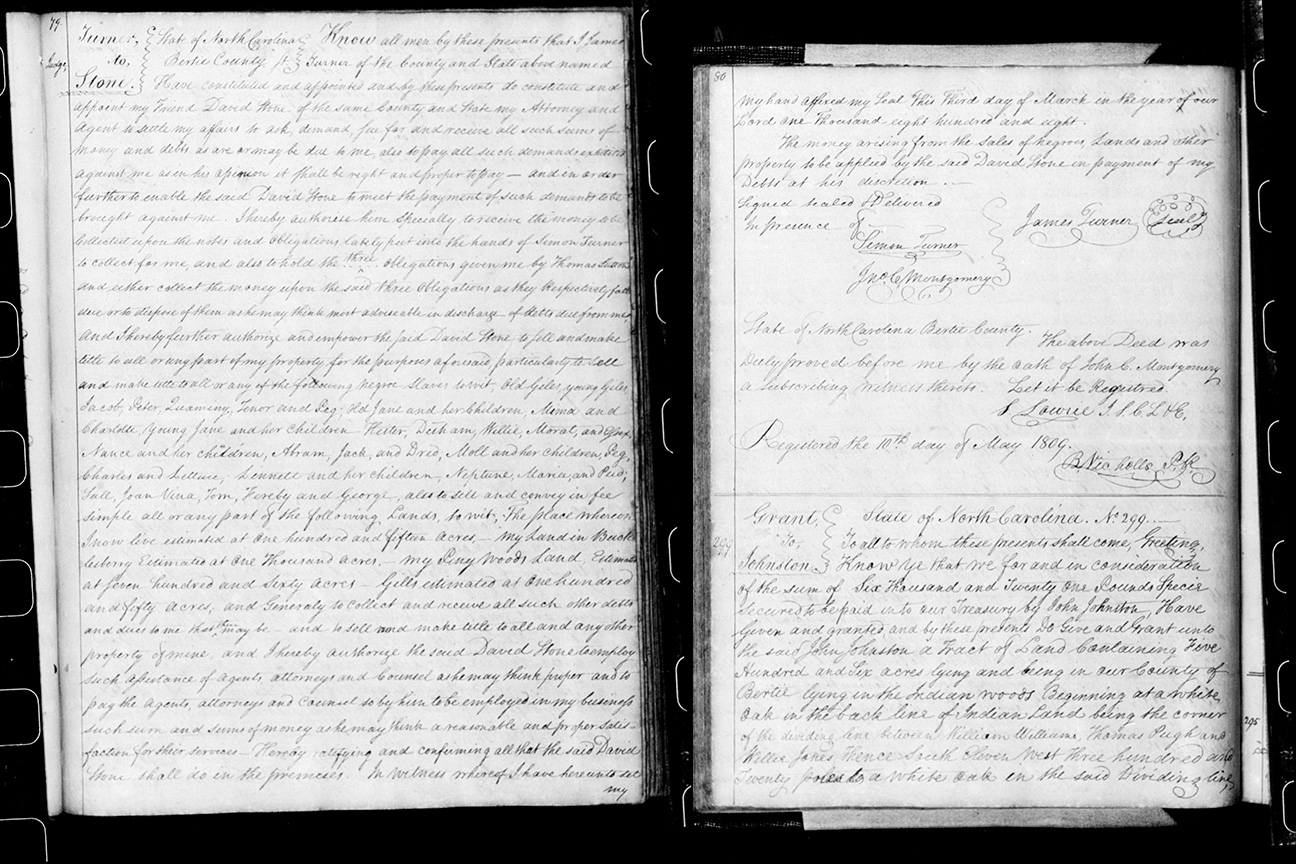 79
Turner, State of North Carolina Know all men by these presents that I James
to, Bertie County Turner of the County and State above named
Stone. Have constituted and appointed and by these presents do constitute and
appoint my Friend David Stone of the same County and State my Attorney and
Agent to settle my affairs to ask, demand, sue for and receive all such sums of
money and debts as are or may be due to me, also to pay all such demands
against me as in his opinion it shall be right and proper to pay — and in order
further to enable the said David Stone to meet the payment of such demands to be
brought against me. I hereby authorise him specially to receive the money to be
Collected upon the notes and obligations lately put into the hands of Simon Turner
to collect for me, and also to hold the three obligations given me by Thomas
and either collect the money upon the said three obligations as they Respectively fall
due or to dispose of them as he may think most adviseable in discharge of debts due from me,
and I hereby further authorize and empower the said David Stone to sell and make
title to all or any part of my property for the purposes aforesaid, particularly to sell
and make title to all or any of the following negroe Slaves to wit, Old Giles, young Giles,
Jacob, Peter, Quaminy, Tenor and Peg, Old Jane and her Children, Mima and
Charlotte, Young Jane and her Children Hester, Durham, Willie, Morat, and
Nance and her children, Abram, Jack, and Dred, Moll and her Children, Peg,
Charles and Lettuce, Linnett and her children, Neptune, Maria, and
Joan Vina, Tom, Hereby and George, also to sell and convey in fee
simple all or any part of the following Lands, to wit, The place whereon
I now live estimated at One hundred and fifteen Acres, — my Land in Buck
Estimated at One Thousand acres, — my Piney Woods Land Estimated
at Seven hundred and Sixty Acres — Giles estimated at One hundred
and fifty Acres, and Generaly to collect and receive all such other debts
and dues to me that may be — and to sell and make title to all and any other
property of mine, and I hereby authorize the said David Stone to employ
such assistance of Agents, attorneys and Counsel as he may think proper and to
pay the Agents, attorneys and Counsel so by him to be employed in my business
such sum and sums of money as he may think a reasonable and proper satis-
faction for their services — Hereby ratifying and confirming all that the said David
Stone shall do in the premises. In Witness whereof I have hereunto set
my
80
my hand affixed my Seal This third day of March in the year of our
Lord One thousand eight hundred and eight.
The money arising from the sales of negroes, Lands and other
property to be applied by the said David Stone in payment of my
Debts at his discretion. —
Signed sealed & Delivered
In presence of James Turner Seal
Simon Turner
Jno. C. Montgomery
State of North Carolina Bertie County.
The above Deed was
Duly proved before me by the oath of John C. Montgomery
a subscribing witness thereto. Let it be Registred
S Lowrie J. S. C. L & E.
Registered the 10th day of May 1809.
Grant, State of North Carolina. No. 299. —
To, To all to whom these presents shall come, Greeting,
Johnston. Know Ye that we for and in consideration
of the sum of Six Thousand and Twenty One Pounds Specie
secured to be paid into our Treasury by John Johnston, Have
Given and granted and by these presents Do Give and Grant unto
the said John Johnston a Tract of Land Containing Five
Hundred and Six acres lying and being in our County of
Bertie lying in the Indian woods Beginning at a white
oak in the back line of Indian Land being the corner
of the dividing line between William Williams, Thomas Pugh and
Willie Jones Thence South Eleven West three hundred and
Twenty poles to a white Oak in the said Dividing line,
295